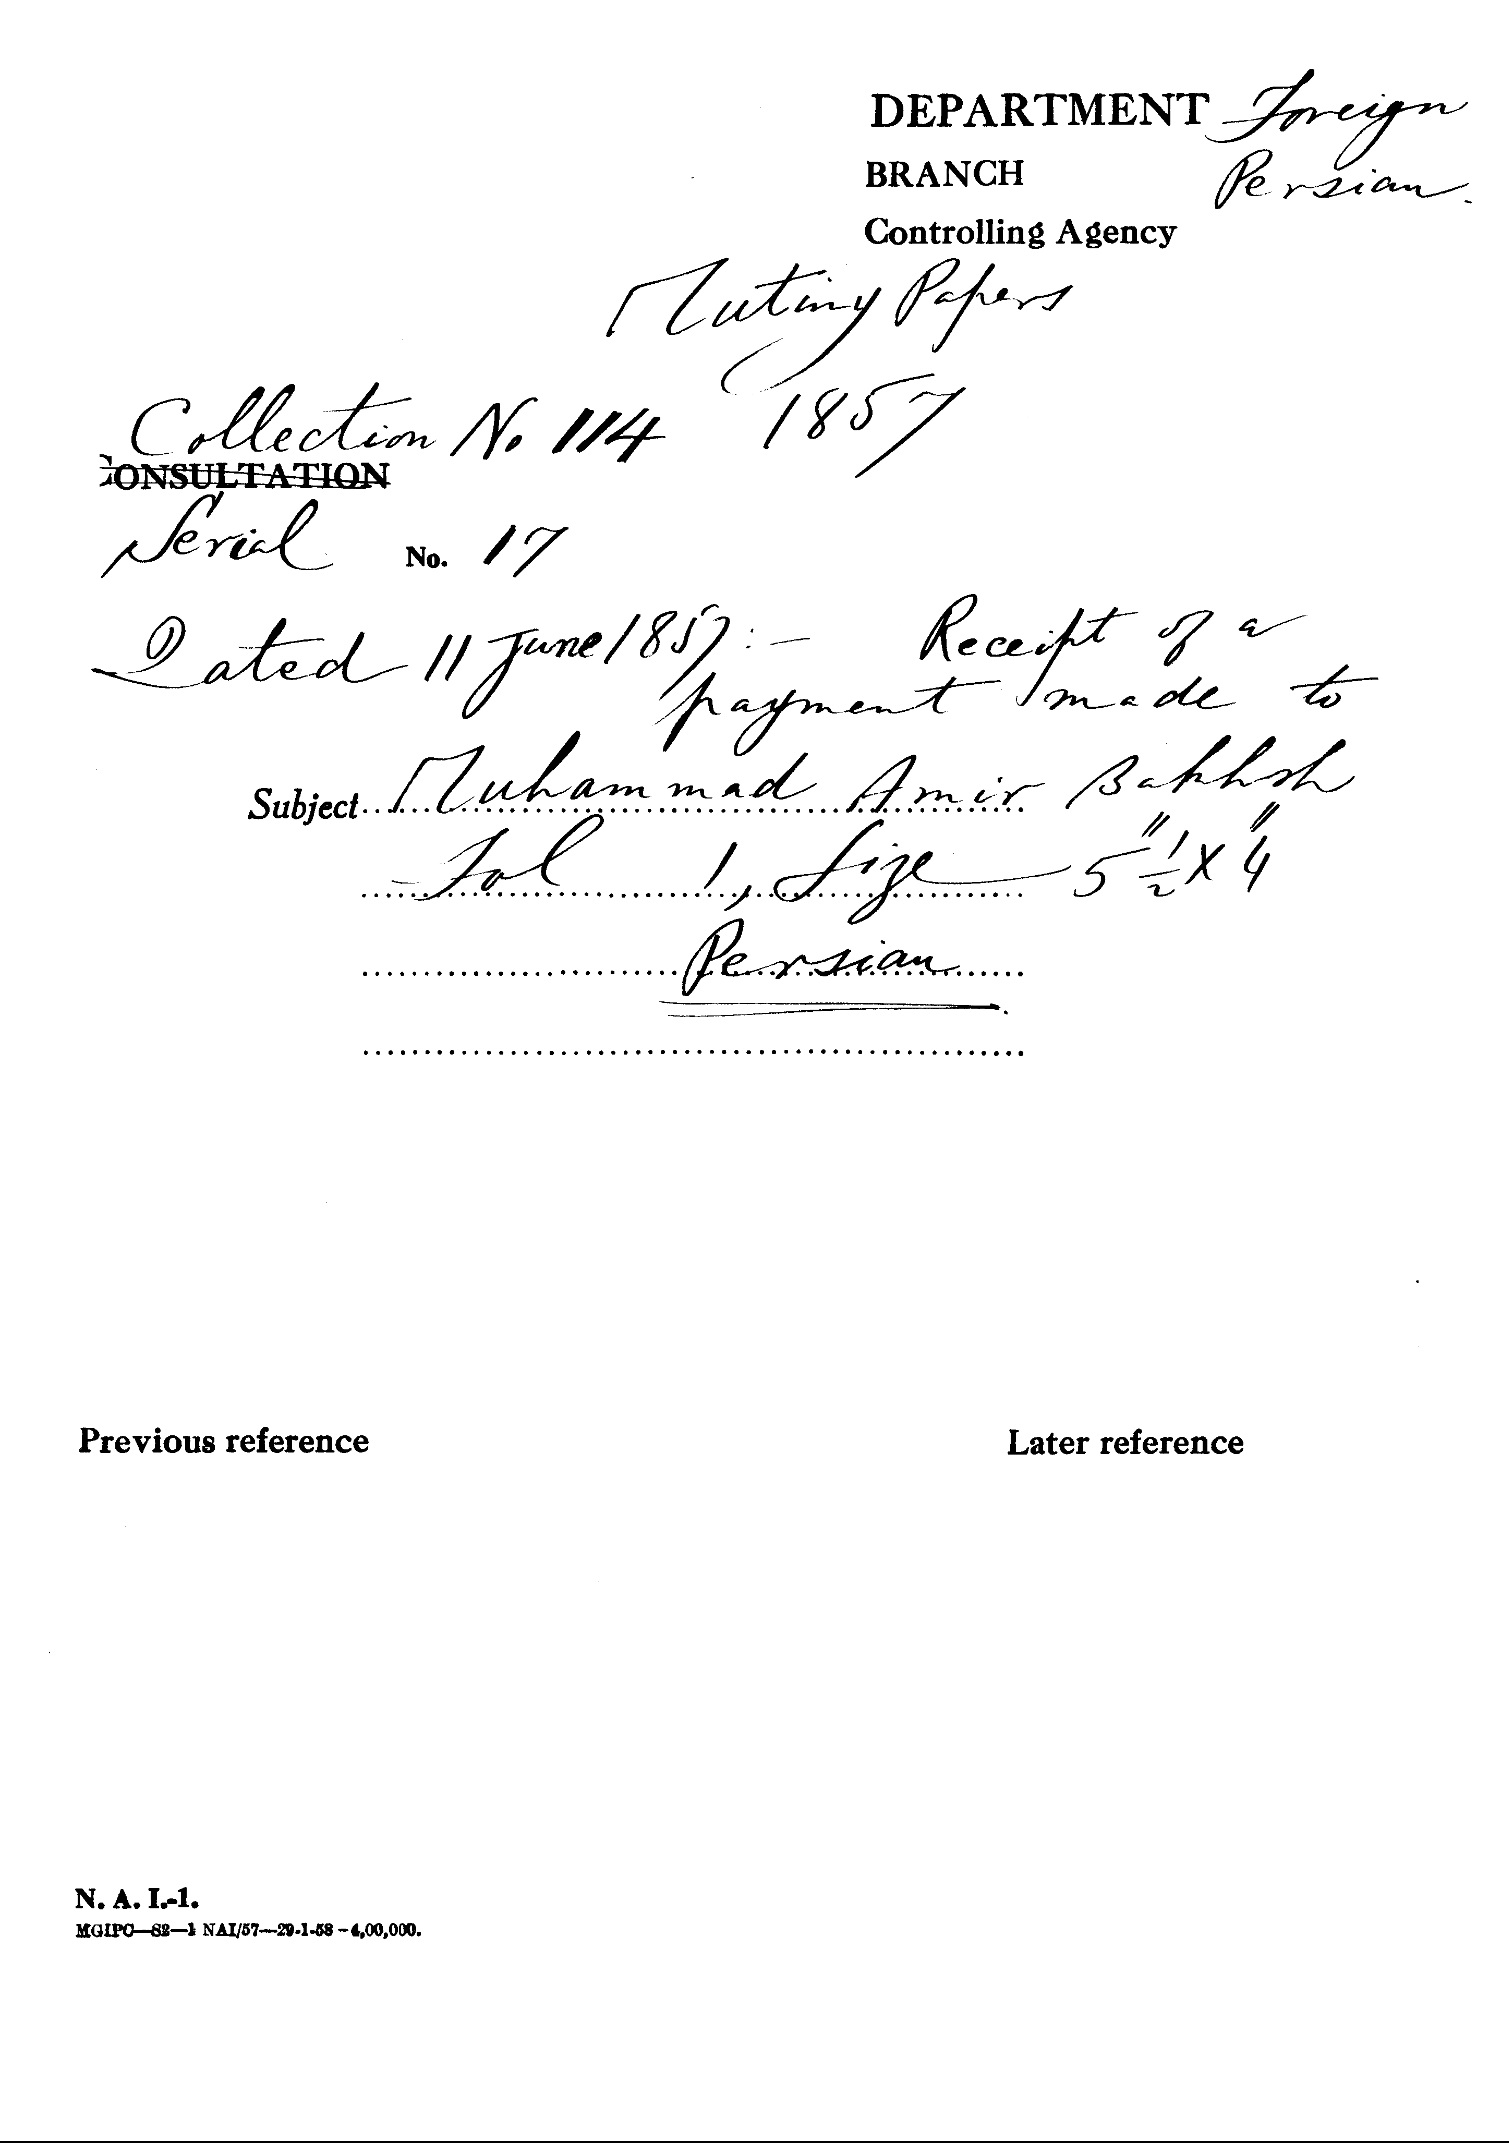 DEPARTMENT Foreign
BRANCH Persian.
Controlling Agency
Mutiny Papers
1857
Collection No 114
CONSULTATION
Serial No. 17
Dated 11 June 1857:— Receipt of a
payment made to
Subject Muhammad Amir Bakhsh
Fol 1, Size 5"½ x 4"
Persian
Previous reference Later reference
N. A. I.-1.
MGIPC—S2—1 NAI/57—29-1-58—4,00,000.